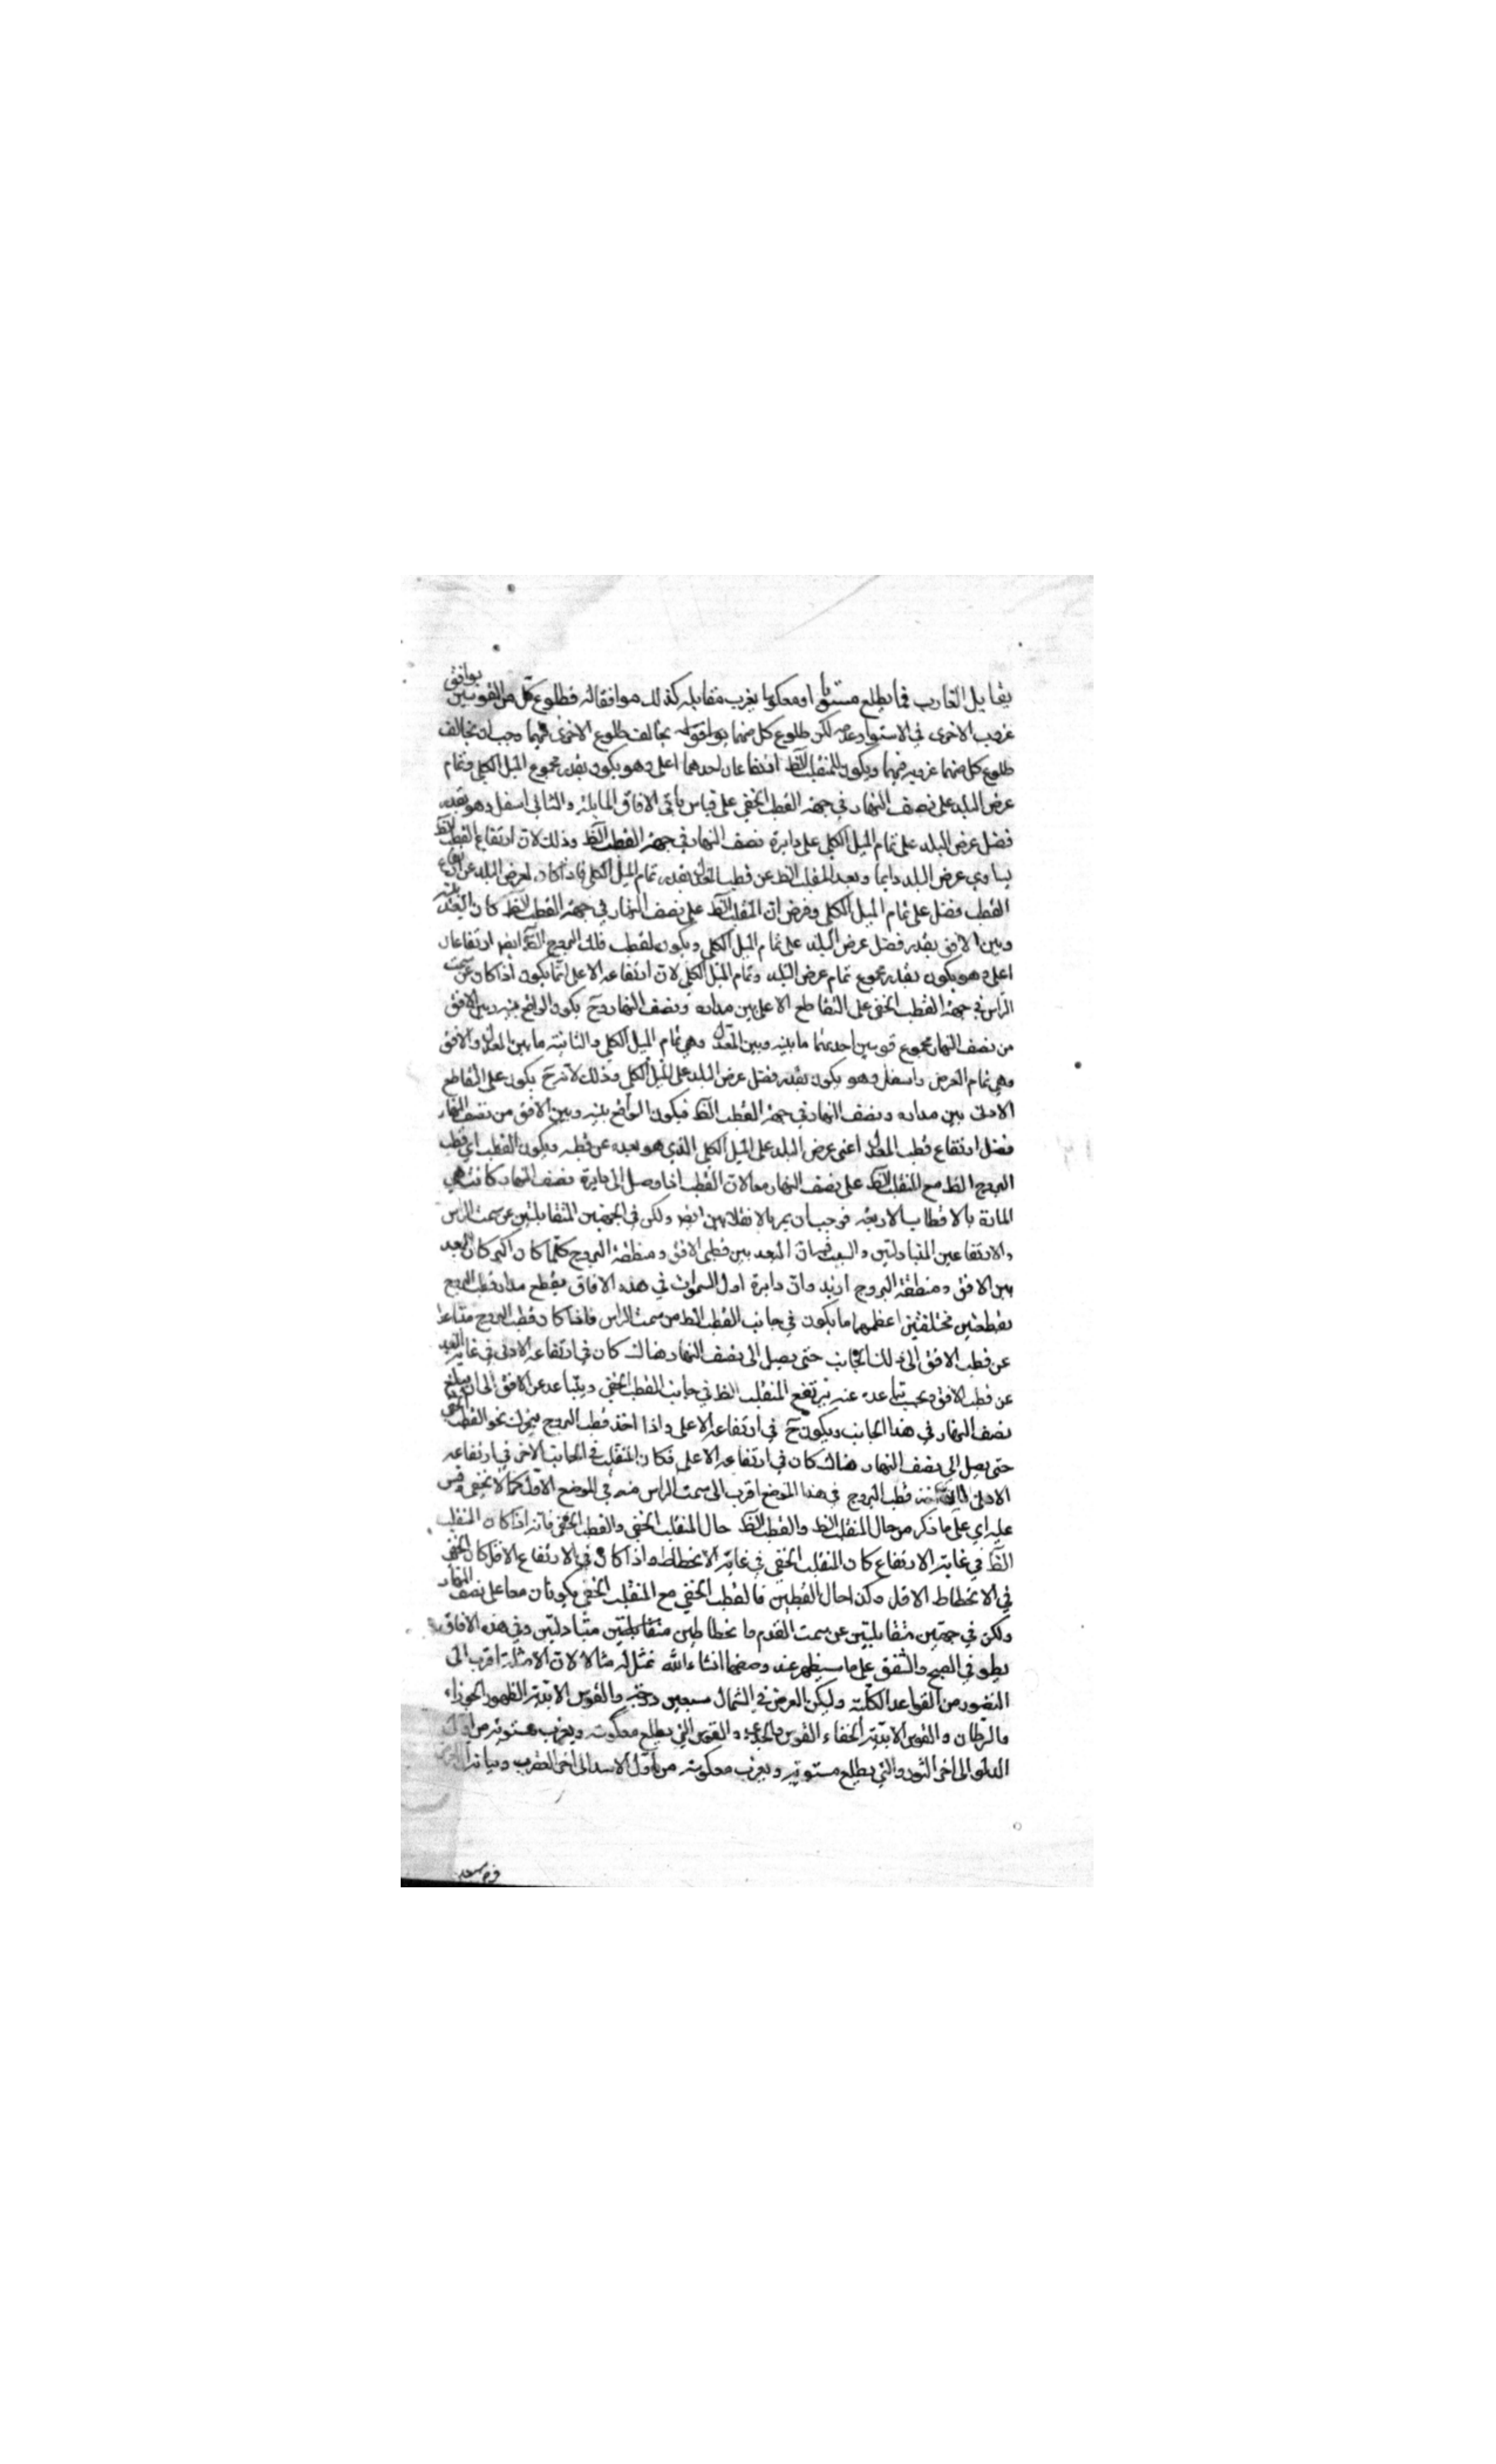 يقابل الغارب فما يطلع مستويا او معكوسا يغرب مقابله كذلك موافقا له فطلوع كل من القوسين يوافق
غروب الاخرى في الاستواء وعدمه لكن طلوع كل منهما يخالف طلوع الاخرى فيهما وجب ان يخالف
طلوع كل منهما غروبه فيهما ويكون للمنقلب الظ ارتفاعان احدهما اعلى وهو يكون بقدر مجموع الميل الكلي وتمام
عرض البلد على نصف النهار في جهة القطب الخفي على قياس باقي الافاق المايلة والثاني اسفل وهو بقدر
فضل عرض البلد على تمام الميل الكلي على دايرة نصف النهار في جهة القطب الظ وذلك لان ارتفاع القطب الظ
يساوي عرض البلد دايما وبعد المنقلب الظ عن قطب المعدل بقدر تمام الميل الكلي فاذا كان لعرض البلد عن ارتفاع
القطب فضل على تمام الميل الكلي وفرض ان المنقلب الظ على نصف النهار في جهة القطب الظ كان البعد بينه
وبين الافق بقدر فضل عرض البلد على تمام الميل الكلي ويكون لقطب فلك البروج الظ ايضا ارتفاعان
اعلى وهو يكون بقدر مجموع تمام عرض البلد وتمام الميل الكلي لان ارتفاعه الاعلى انما يكون اذا كان عن سمت
الراس في جهة القطب الخفي على التقاطع الاعلى بين مداره ونصف النهار وح يكون الواقع بينه وبين الافق
من نصف النهار مجموع قوسين احدهما ما بينه وبين المعدل وهي تمام الميل الكلي والثانية ما بين المعدل والافق
وهي تمام العرض واسفل وهو يكون بقدر فضل عرض البلد على الميل الكلي وذلك لانه ح يكون على التقاطع
الادنى بين مداره ونصف النهار في جهة القطب الظ فيكون الواقع بينه وبين الافق من نصف النهار
فضل ارتفاع قطب المعدل اعنى عرض البلد على الميل الكلي الذي هو بعده عن قطبه ويكون القطب اي قطب
البروج الظ مع المنقلب الظ على نصف النهار معا لان القطب اذا وصل الى دايرة نصف النهار كانت هي
المارة بالاقطاب الاربعة فوجب ان يمر بالانقلابين ايضا ولكن في الجهتين المتقابلتين عن سمت الراس
والارتفاعين المتبادلين والسبب فيه ان البعد بين قطبي الافق ومنطقة البروج كلما كان اكثر كان البعد
بين الافق ومنطقة البروج ازيد وان دايرة اول السموت في هذه الافاق يقطع مدار قطب البروج
بقطعتين مختلفتين اعظمهما ما يكون في جانب القطب الظ من سمت الراس فاذا كان قطب البروج متباعدا
عن قطب الافق الى ذلك الجانب حتى يصل الى نصف النهار هناك كان في ارتفاعه الادنى في غاية البعد
عن قطب الافق وبحسب تباعده عنه يرتفع المنقلب الظ في جانب القطب الخفي ويتباعد عن الافق الى ان يبلغ
نصف النهار في هذا الجانب ويكون ح في ارتفاعه الاعلى واذا اخذ قطب البروج يتحرك نحو القطب الخفي
حتى يصل الى نصف النهار هناك كان في ارتفاعه الاعلى فكان المنقلب في الجانب الاخر في ارتفاعه
الادنى قطب البروج في هذا الموضع اقرب الى سمت الراس منه في الموضع الاول كما لا يخفى وقس
عليه اي على ما ذكر من حال المنقلب الظ والقطب الظ حال المنقلب الخفي والقطب الخفي فانه اذا كان المنقلب
الظ في غاية الارتفاع كان المنقلب الخفي في غاية الانحطاط واذا كان في الارتفاع الاقل كان الخفي
في الانحطاط الاقل وكذا حال القطبين فالقطب الخفي مع المنقلب الخفي يكونان معا على نصف النهار
ولكن في جهتين متقابلتين عن سمت القدم وانحطاطين متقابلين متبادلين وفي هذه الافاق
يطول في الصبح والشفق على ما سيظهر عند وصفهما انشاء الله نمثل له مثالا لان الامثلة اقرب الى
التصور من القواعد الكلية وليكن العرض في الشمال سبعين درجة والقوس الابدية الظهور الجوزاء
والسرطان والقوس الابدية الخفاء القوس والجدي والقوس التي يطلع معكوسة ويغرب مستوية من اول
الدلو الى اخر الثور والتي يطلع مستوية ويغرب معكوسة من اول الاسد الى اخر العقرب وبيانه